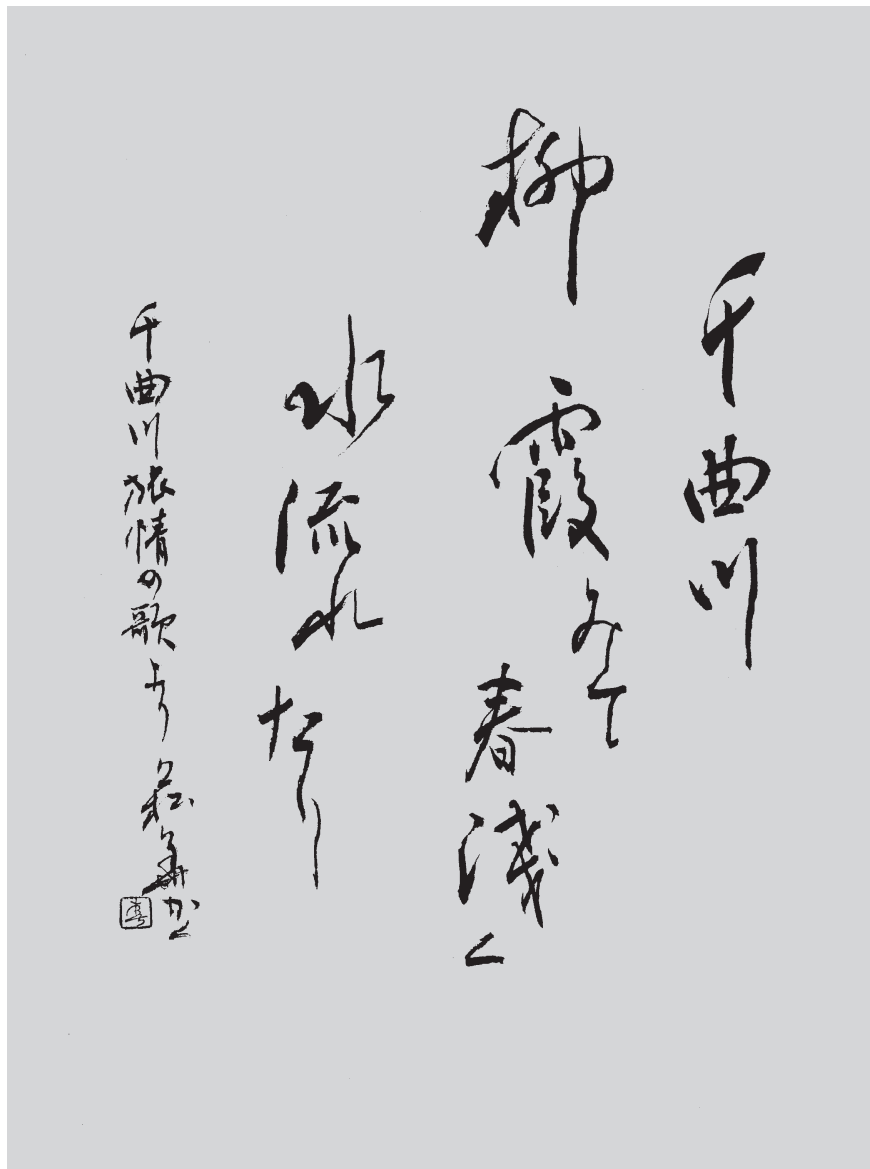 千曲川
柳霞みて
春浅く
水流れたり
千曲川旅情の歌より かく